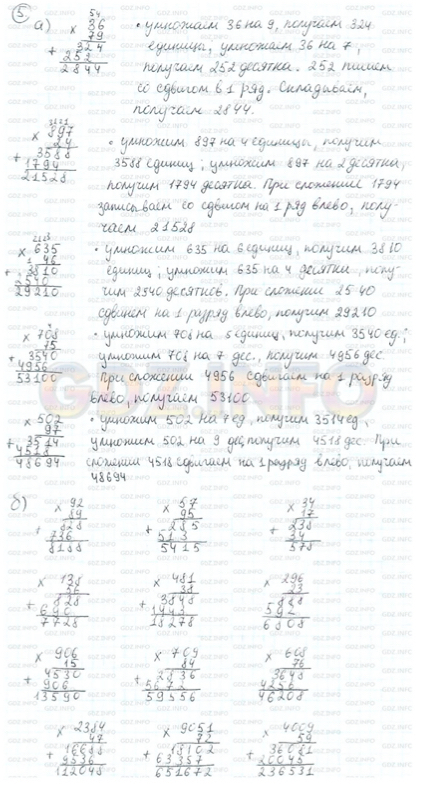 5
а)
54
× 36
79
+ 324
252
2844
• умножаем 36 на 9, получаем 324
единицы, умножаем 36 на 7,
получаем 252 десятка. 252 пишем
со сдвигом в 1 ряд. Складываем,
получаем 2844.
× 897
24
+ 3588
1794
21528
• умножим 897 на 4 единицы, получим
3588 единиц; умножим 897 на 2 десятка,
получим 1794 десятка. При сложении 1794
записываем со сдвигом на 1 ряд влево, полу-
чаем 21528
× 635
46
+ 3810
2540
29210
• умножим 635 на 6 единиц, получим 3810
единиц; умножим 635 на 4 десятки, полу-
чим 2540 десятков. При сложении 2540
сдвигаем на 1 разряд влево, получим 29210
× 708
75
+ 3540
4956
53100
• умножим 708 на 5 единиц, получим 3540 ед.;
умножим 708 на 7 дес., получим 4956 дес.
При сложении 4956 сдвигаем на 1 разряд
влево, получаем 53100.
× 502
97
+ 3514
4518
48694
• умножим 502 на 7 ед, получим 3514 ед,
умножим 502 на 9 дес, получим 4518 дес. При
сложении 4518 сдвигаем на 1 разряд влево, получаем
48694
GDZ.INFO
б)
× 92
89
+ 828
736
8188
× 57
95
+ 285
513
5415
× 34
17
+ 238
34
578
× 138
56
+ 828
690
7728
× 481
38
+ 3848
1443
18278
× 296
23
+ 888
592
6808
× 906
15
+ 4530
906
13590
× 709
84
+ 2836
5672
59556
× 608
76
+ 3648
4256
46208
× 2384
47
+ 16688
9536
112048
× 9051
72
+ 18102
63357
651672
× 4009
59
+ 36081
20045
236531